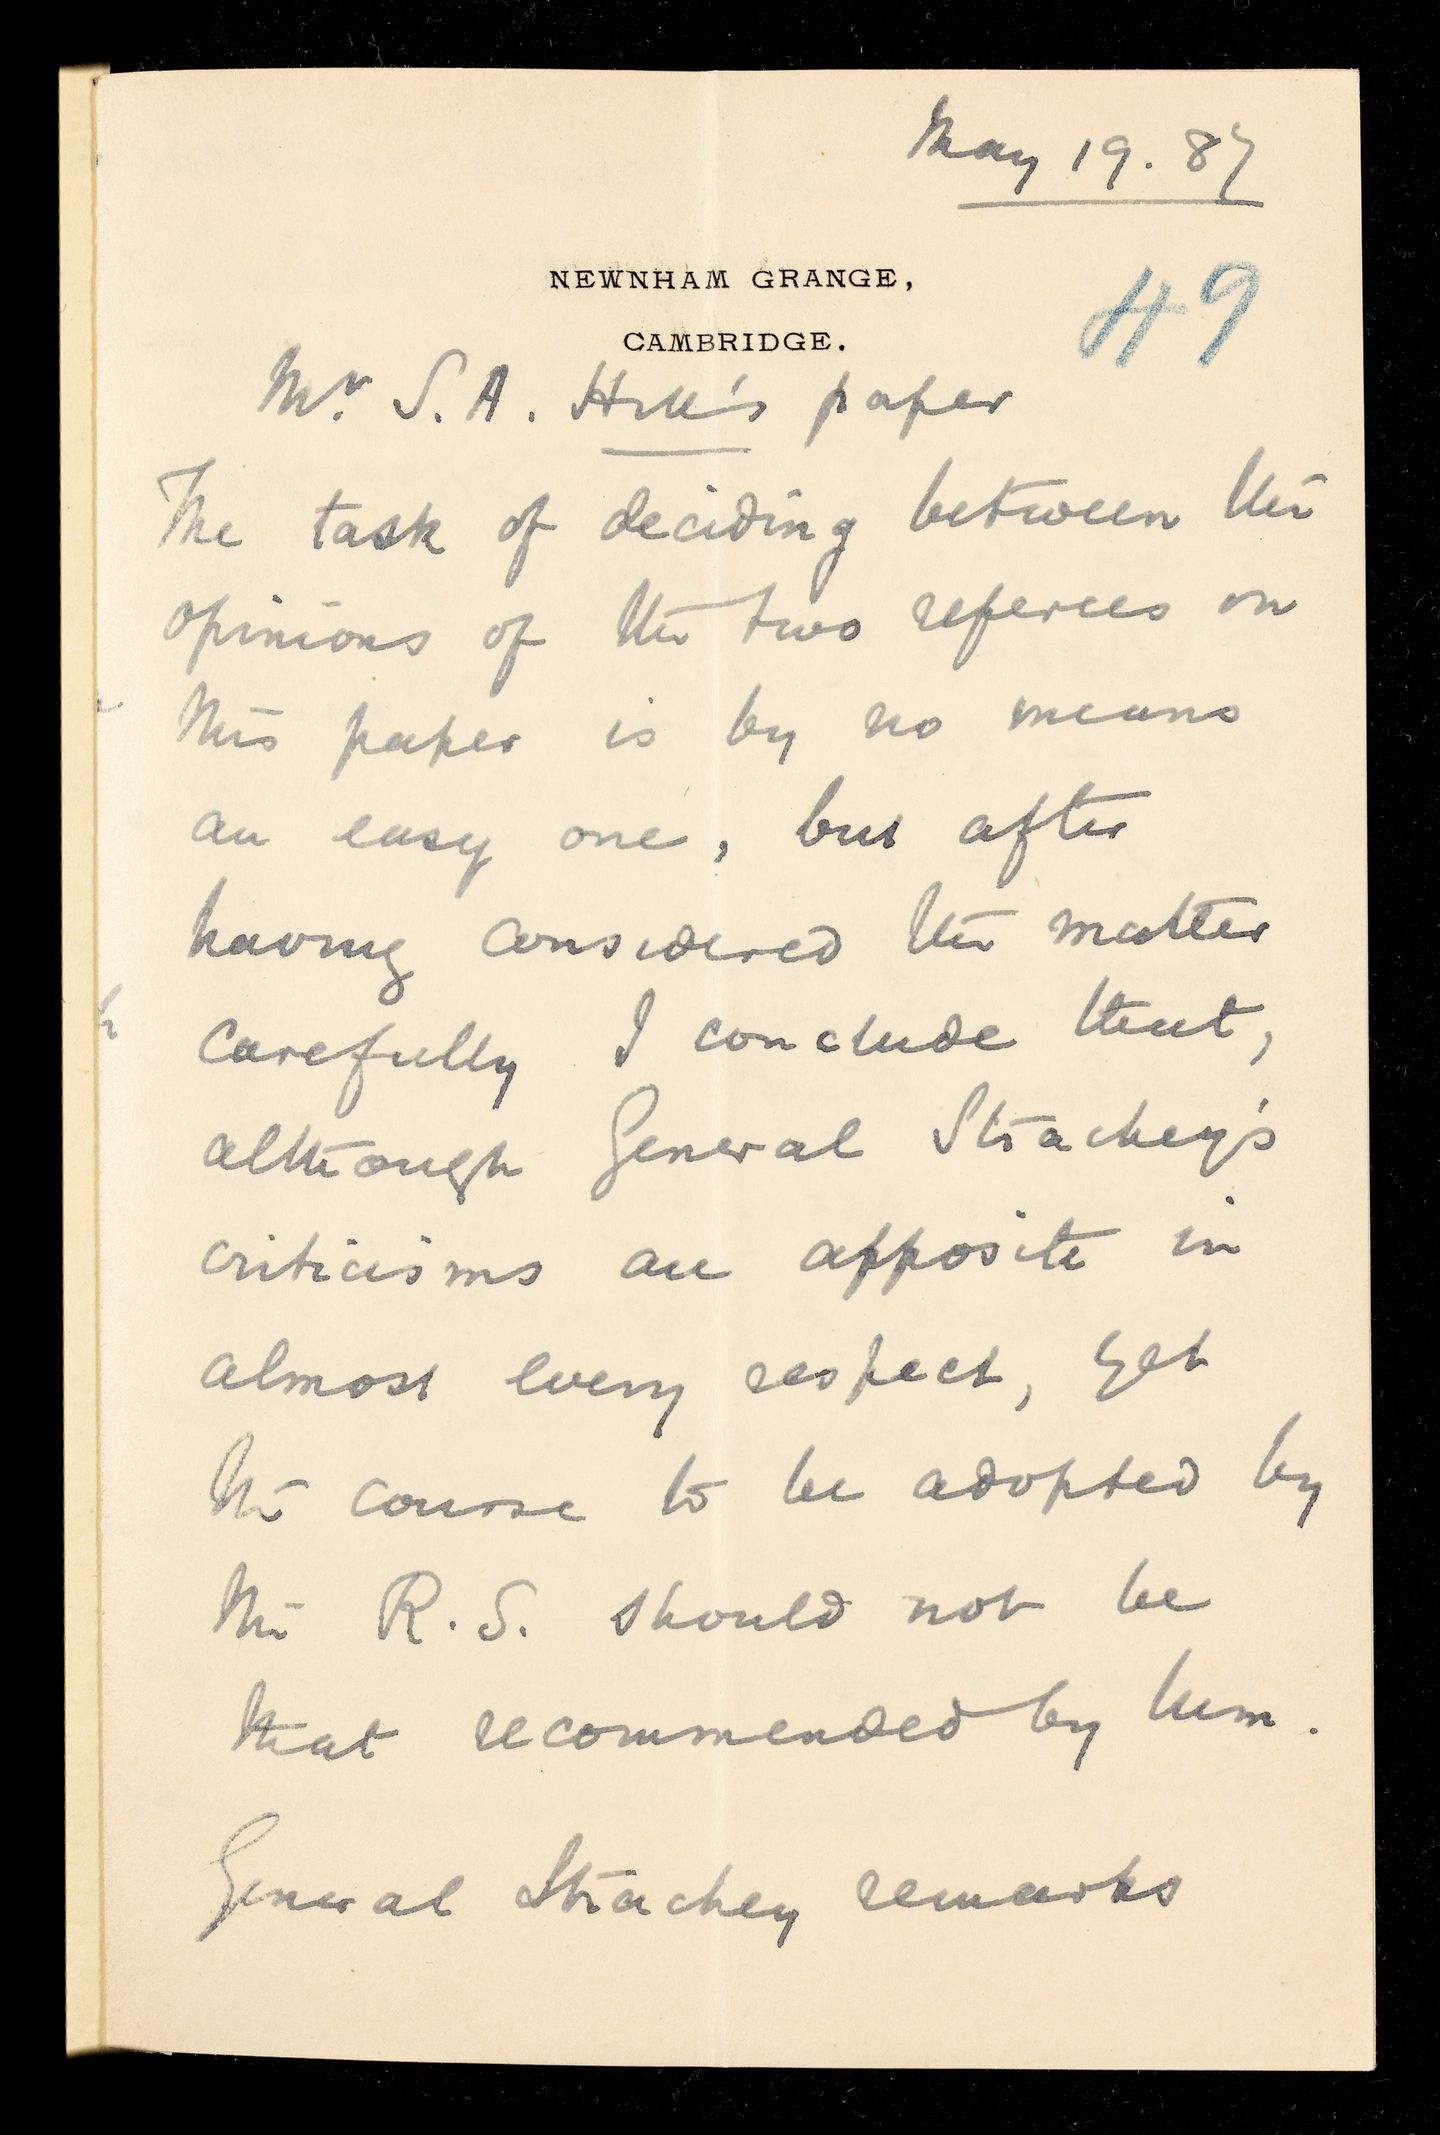 May 19. 87
NEWNHAM GRANGE,
49
CAMBRIDGE.
Mr. S. A. Hill's paper
The task of deciding between the
opinions of the two referees on
this paper is by no means
an easy one, but after
having considered the matter
carefully I conclude that,
although General Strachey's
criticisms are apposite in
almost every respect, yet
the course to be adopted by
the R. S. should not be
that recommended by him.
General Strachey remarks